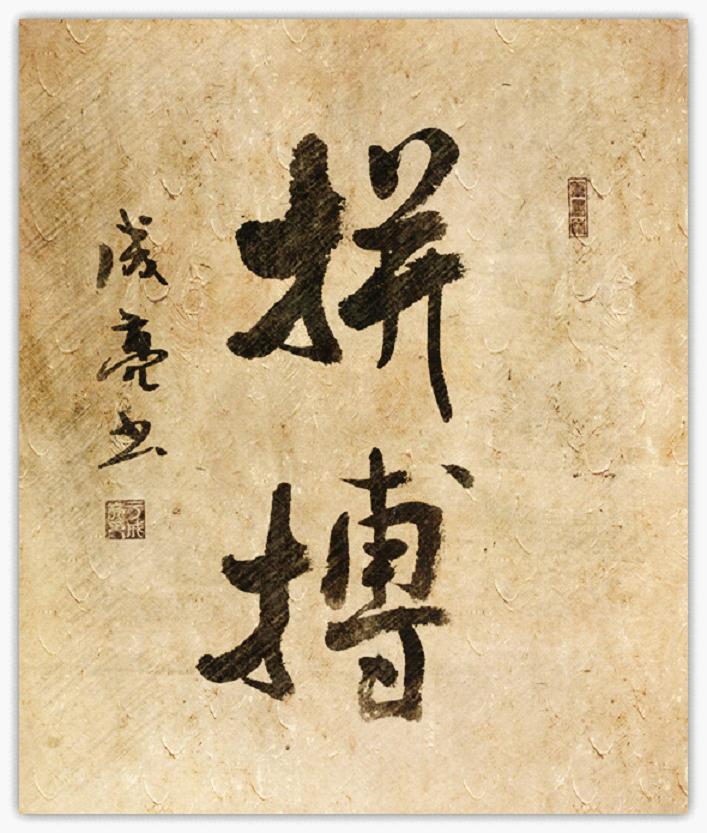 拼搏
成亮书